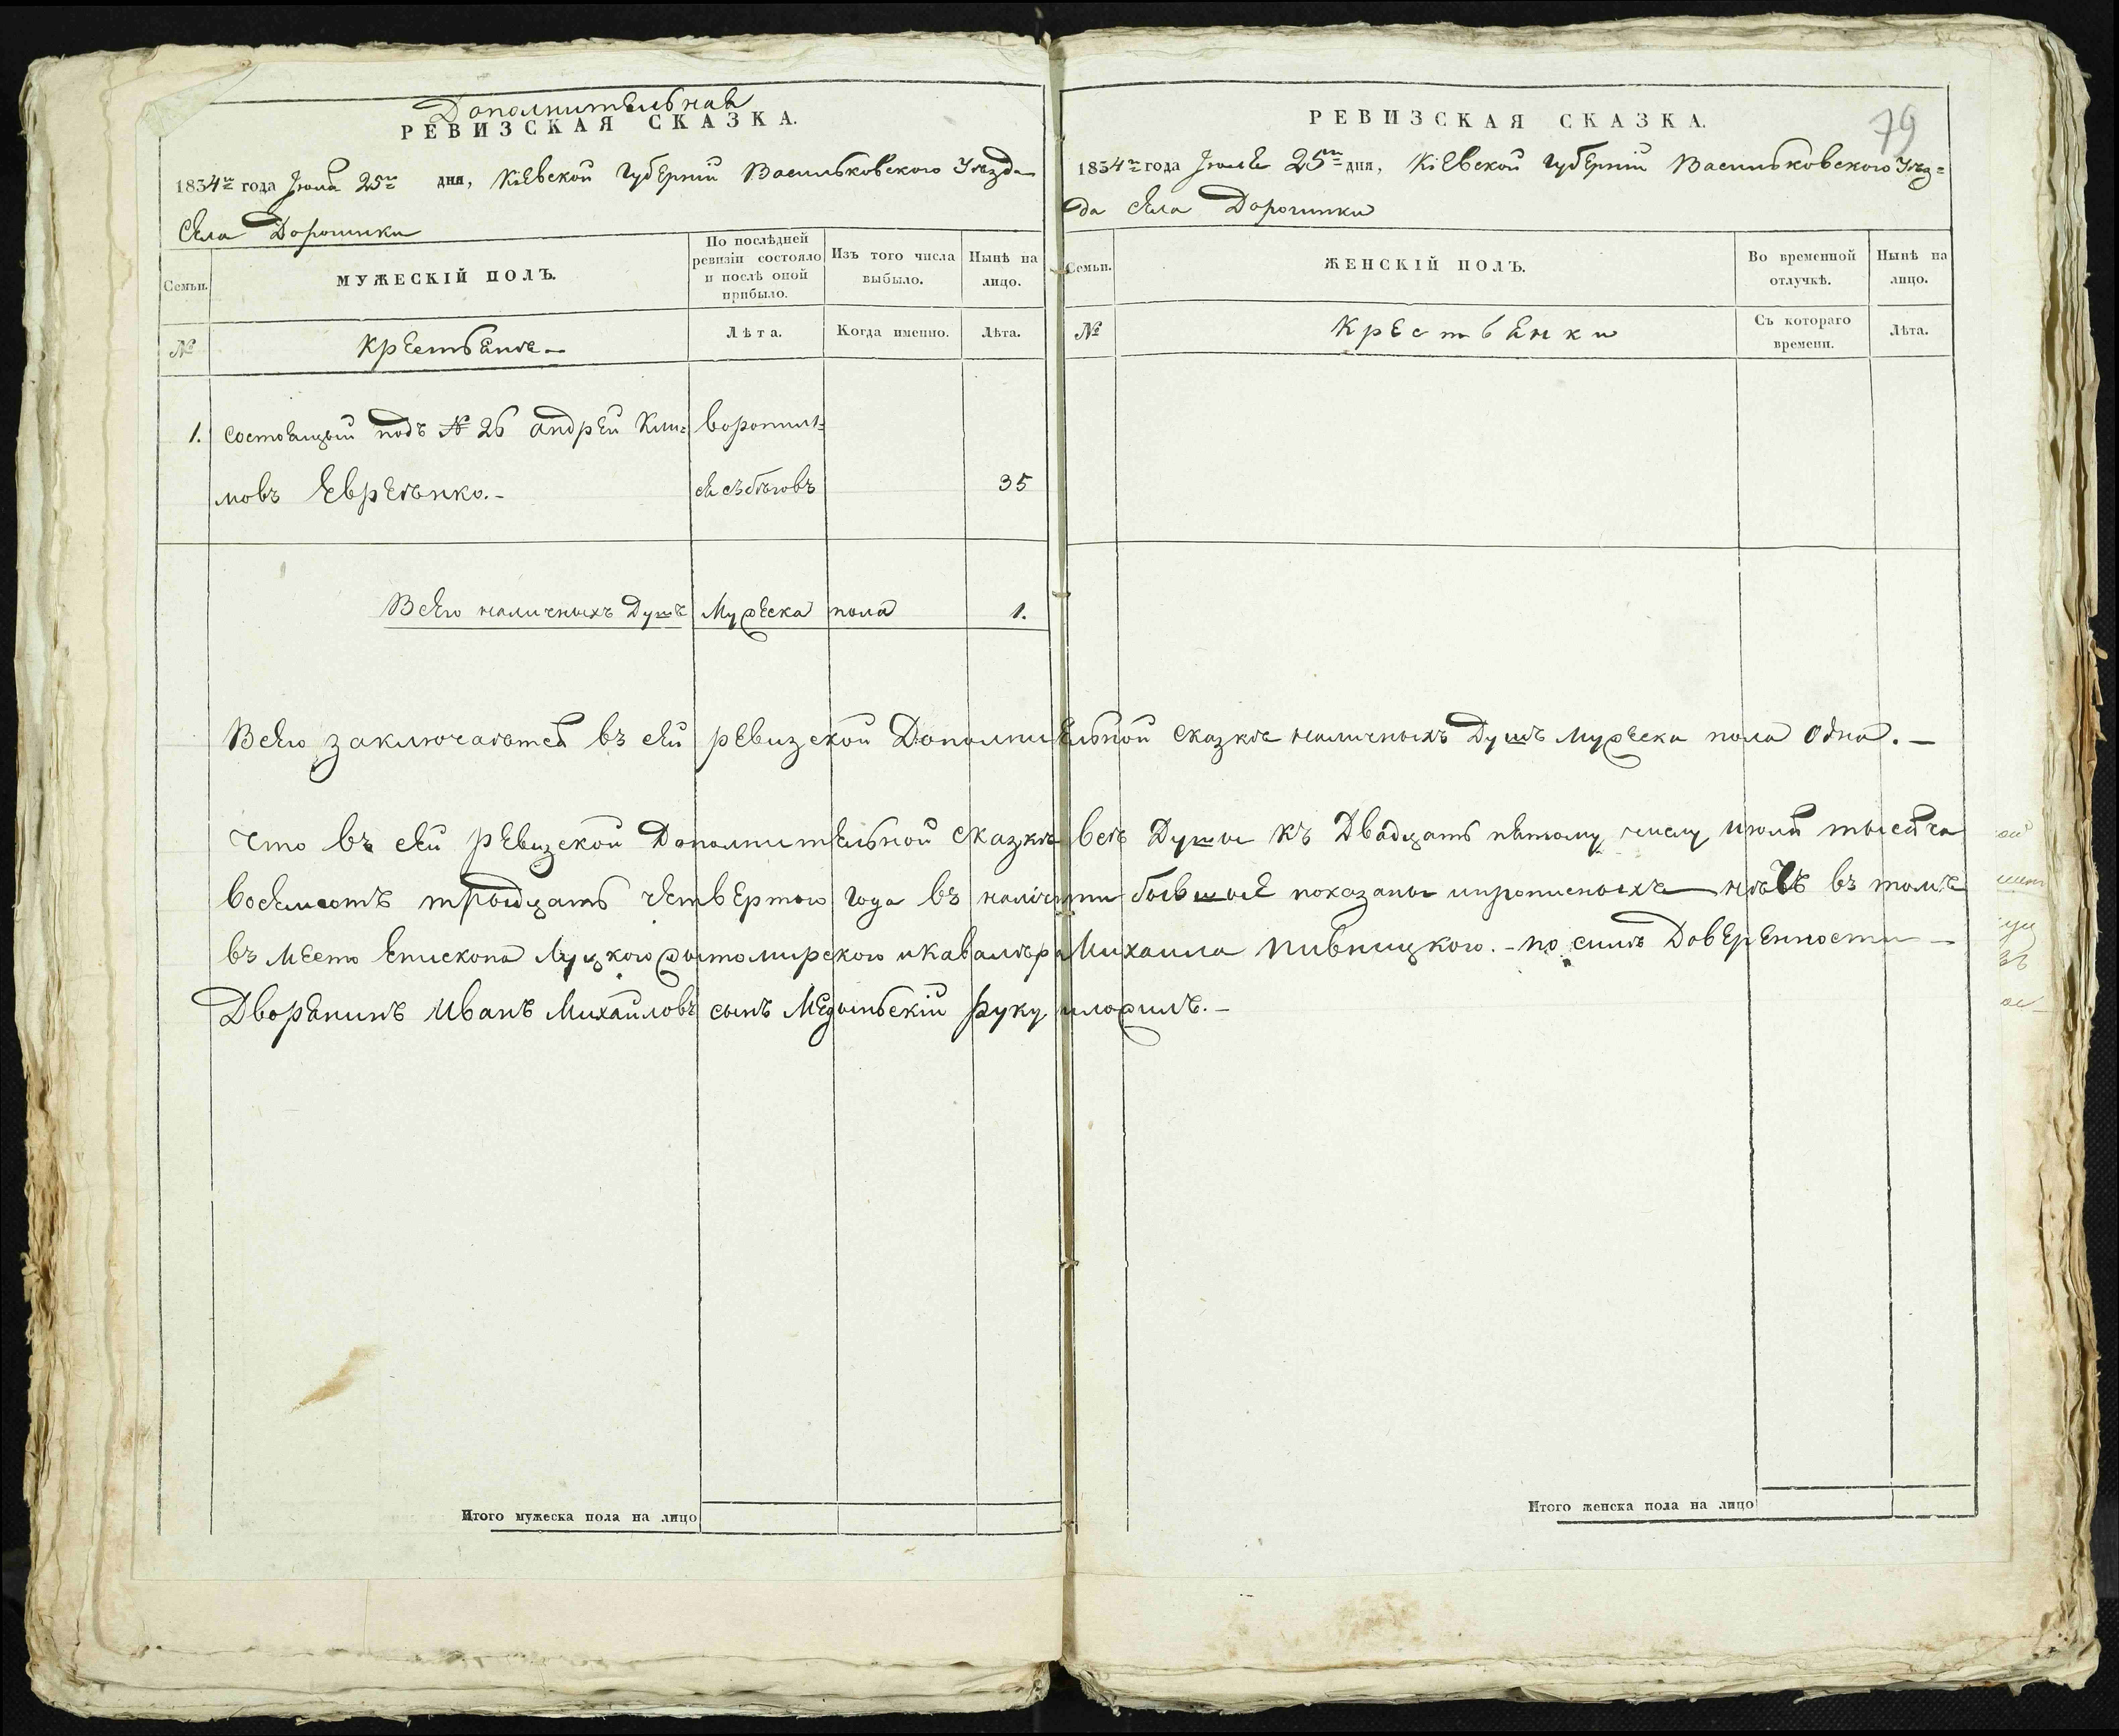 Дополнительная
РЕВИЗСКАЯ СКАЗКА.
1834го года Июля 25го дня, Кіевской Губерніи Васильковского Уѣзда
Села Дорогинки
Семьи.
МУЖЕСКІЙ ПОЛЪ.
По послѣдней ревизіи состояло и послѣ оной прибыло.
Изъ того числа выбыло.
Нынѣ на лицо.
№
Крестьяне
Лѣта.
Когда именно.
Лѣта.
1. состоящый подъ № 26 андрей Кли= воротил=
мовъ Евреенко.- ся съ бѣговъ 35
Всего наличныхъ Душъ Мужеска пола 1.
79
РЕВИЗСКАЯ СКАЗКА.
1834го года Июля 25го дня, Кіевской Губерніи Васильковского Уѣз=
да села Дорогинки
Семьи.
ЖЕНСКІЙ ПОЛЪ.
Во временной отлучкѣ.
Нынѣ на лицо.
№
Крестьянки
Съ котораго времени.
Лѣта.
Всего заключаетса въ сей ревизской Дополнительной сказке наличныхъ Душъ мужеска пола одна.-
Что въ сей ревизской Дополнительной сказке все Душы къ Двадцать пятому числу июля тысеча
восемсотъ трыдцать четвертого года въ наличии бывшые показаны ипрописныхъ нѣтъ въ томъ
въ место Епископа Луцкого житомирского икавалера Михаила Пивницкого.- по силѣ Доверенности -
Дворянинъ Иванъ Михайловъ сынъ руку иложилъ.-
Итого мужеска пола на лицо
Итого женска пола на лицо